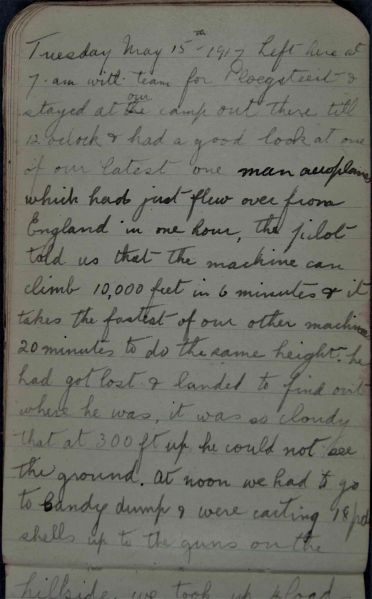 Tuesday May 15th 1917 Left here at
7. am with team for Ploegsteert &
stayed at our camp out there till
12 oclock & had a good look at one
of our latest one man aeroplanes
which had just flew over from
England in one hour, the pilot
told us that the machine can
climb 10,000 feet in 6 minutes & it
takes the fastest of our other machines
20 minutes to do the same height. he
had got lost & landed to find out
where he was, it was so cloudy
that at 300 ft up he could not see
the ground. At noon we had to go
to dump & were carting 18 pd
shells up to the guns on the
hillside. we took up